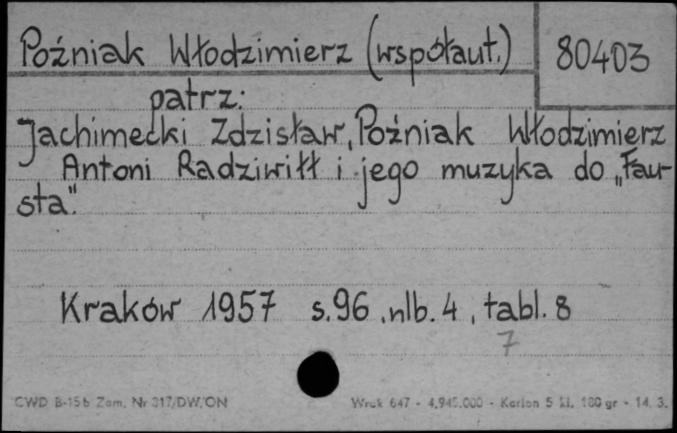 Poźniak Włodzimierz (współaut.)
80403
patrz:
Jachimecki Zdzisław, Poźniak Włodzimierz
Antoni Radziwiłł i jego muzyka do „Fau-
sta".
Kraków 1957 s.96, nlb. 4, tabl. 8
7
CWD B-15b Zam. Nr 317/DW/ON
Wrsk 647 - 4.945.000 - Karton 5 kl. 180 gr - 14. 3.